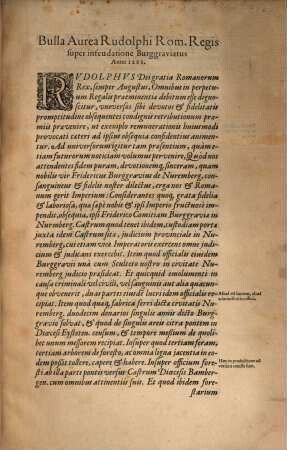 Bulla Aurea Rudolphi Rom. Regis
super infeudatione Burggraviatus
Anno 1281.
RVDOLPHVS Dei gratia Romanorum
Rex, semper Augustus, Omnibus in perpetuum
Regalis præeminentiæ debitum esse dignoscitur,
universis sibi devotis & fidelitatis
promptitudine obsequentes condignis retributionum præmiis
prævenire, ut exemplo remunerationis huiusmodi
provocati cæteri ad ipsius obsequia confidentius animentur.
Ad universorum igitur tam præsentium, quàm etiam
futurorum notitiam volumus pervenire, Quod nos
attendentes fidem puram, devotionemque sinceram, quam
nobilis vir Fridericus Burggravius de Nuremberg, consanguineus
& fidelis noster dilectus, erga nos & Romanum
gerit Imperium: Considerantes quoque, grata fidelia
& laboriosa, quæ sæpe nobis & ipsi Imperio fructuosè impendit,
obsequia, ipsi Friderico Comitiam Burggraviæ in
Nuremberg. Castrum quod tenet ibidem, custodiam portæ
juxta idem Castrum sitæ, judicium provinciale in Nuremberg,
cui etiam vice Imperatoris exercens omne judicium
& judicandi præsidebit. Item quod officialis ejusdem
Burggravii unà cum Sculteto nostro in civitate Nuremberg
judicio præsideat. Et quicquid emolumenti in
causa criminali vel civili, vel sanguinis aut alia quacunque
obvenerit, duas partes tandem officialis recipiat.
Item quod quæq; fabrica ferri dictæ civitatis Nuremberg,
duodecim denarios singulis annis dicto Burggravio
solvat, & quod de singulis areis citra pontem in
Diœcesi Eystetten. censum, & tempore messium de quolibet
unum messorem recipiat. Insuper quod tertiam feram,
tertiam arborem de foresto, ac omnia ligna jacentia in eodem
possit tollere, capere & habere. Insuper officium forestarii
ab illa parte pontis versus Castrum Diœcesis Bambergen.
cum omnibus attinentiis suis. Et quod ibidem forestarium